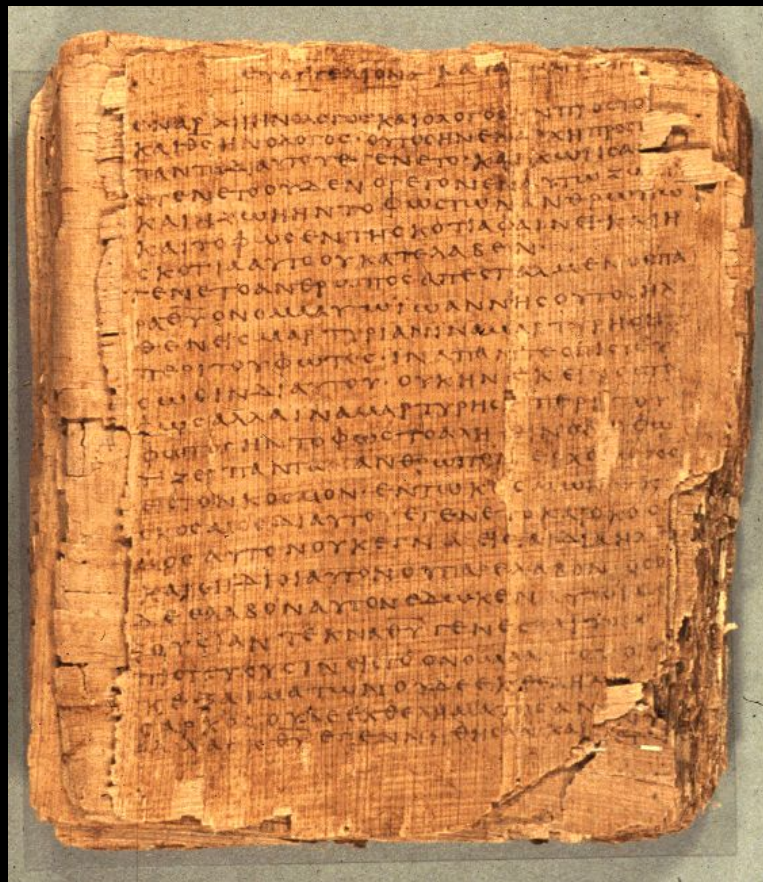 ΕΥΑΓΓΕΛΙΟΝ ΚΑΤΑ
ΕΝΑΡΧΗΗΝΟΛΟΓΟΣΚΑΙΟΛΟΓΟΣ ΗΝΠΡΟΣΤΟ
ΚΑΙΘΣΗΝΟΛΟΓΟΣ·ΟΥΤΟΣΗΝΕΝΑΡΧΗΠΡΟΣΤ
ΠΑΝΤΑΔΙΑΥΤΟΥΕΓΕΝΕΤΟ·ΚΑΙΧΩΡΙΣΑΥ
ΕΓΕΝΕΤΟΟΥΔΕΝΟΓΕΓΟΝΕΝΕΝΑΥΤΩΖΩΗ
ΚΑΙΗΖΩΗΗΝΤΟΦΩΣΤΩΝΑΝΘΡΩΠΩ
ΚΑΙΤΟΦΩΣΕΝΤΗΣΚΟΤΙΑΦΑΙΝΕΙ·ΚΑΙΗ
ΣΚΟΤΙΑΑΥΤΟΟΥΚΑΤΕΛΑΒΕΝ·
ΕΓΕΝΕΤΟΑΝΘΡΩΠΟΣΑΠΕΣΤΑΛΜΕΝΟΣΠΑ
ΡΑΘΥΟΝΟΜΑΑΥΤΩΙΩΑΝΝΗΣΟΥΤΟΣΗΛ
ΘΕΝΕΙΣΜΑΡΤΥΡΙΑΝΙΝΑΜΑΡΤΥΡΗΣΗ
ΠΕΡΙΤΟΥΦΩΤΟΣ·ΙΝΑΠΑΝΤΕΣΠΙΣΤΕΥ
ΣΩΣΙΝΔΙΑΥΤΟΥ·ΟΥΚΗΝΕΚΕΙΝΟΣΤΟ
ΦΩΣΑΛΛΑΙΝΑΜΑΡΤΥΡΗΣΗΠΕΡΙΤΟΥ
ΦΩΤΟΣΗΝΤΟΦΩΣΤΟΑΛΗΘΙΝΟΝΟΦΩ
ΤΙΖΕΙΠΑΝΤΑΑΝΘΡΩΠΟΝΕΡΧΟΜΕΝΟΝ
ΕΙΣΤΟΝΚΟΣΜΟΝ·ΕΝΤΩΚΟΣΜΩΗΝΚΑΙ
ΟΚΟΣΜΟΣΔΙΑΥΤΟΥΕΓΕΝΕΤΟΚΑΙΟΚΟΣ
ΜΟΣΑΥΤΟΝΟΥΚΕΓΝΩΕΙΣΤΑΙΔΙΑΗΛΘΕ
ΚΑΙΟΙΙΔΙΟΙΑΥΤΟΝΟΥΠΑΡΕΛΑΒΟΝ·ΟΣΟΙ
ΔΕΕΛΑΒΟΝΑΥΤΟΝΕΔΩΚΕΝΑΥΤΟΙΣΕ
ΞΟΥΣΙΑΝΤΕΚΝΑΘΥΓΕΝΕΣΘΑΙΤΟΙΣ
ΠΙΣΤΕΥΟΥΣΙΝΕΙΣΤΟΟΝΟΜΑΑΥΤΟΥΟΙ
ΟΥΚΕΞΑΙΜΑΤΩΝΟΥΔΕΕΚΘΕΛΗΜΑ
ΣΑΡΚΟΣΟΥΔΕΕΚΘΕΛΗΜΑΤΟΣΑΝ
ΑΛΛΑΕΚΘΥΕΓΕΝΝΗΘΗΣΑΝ ΚΑΙ